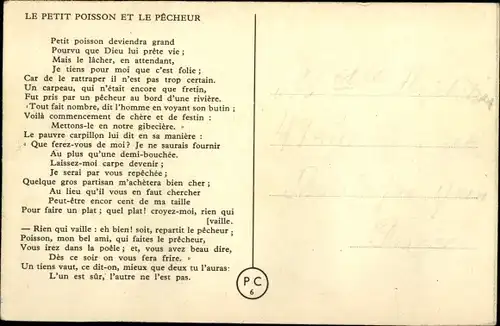 LE PETIT POISSON ET LE PÊCHEUR
Petit poisson deviendra grand
Pourvu que Dieu lui prête vie ;
Mais le lâcher, en attendant,
Je tiens pour moi que c'est folie ;
Car de le rattraper il n'est pas trop certain.
Un carpeau, qui n'était encore que fretin,
Fut pris par un pêcheur au bord d'une rivière.
« Tout fait nombre, dit l'homme en voyant son butin ;
Voilà commencement de chère et de festin :
Mettons-le en notre gibecière. »
Le pauvre carpillon lui dit en sa manière :
« Que ferez-vous de moi? Je ne saurais fournir
Au plus qu'une demi-bouchée.
Laissez-moi carpe devenir ;
Je serai par vous repêchée ;
Quelque gros partisan m'achètera bien cher ;
Au lieu qu'il vous en faut chercher
Peut-être encor cent de ma taille
Pour faire un plat ; quel plat! croyez-moi, rien qui
[vaille.
— Rien qui vaille : eh bien! soit, repartit le pêcheur ;
Poisson, mon bel ami, qui faites le prêcheur,
Vous irez dans la poêle ; et, vous avez beau dire,
Dès ce soir on vous fera frire. »
Un tiens vaut, ce dit-on, mieux que deux tu l'auras:
L'un est sûr, l'autre ne l'est pas.
PC
6